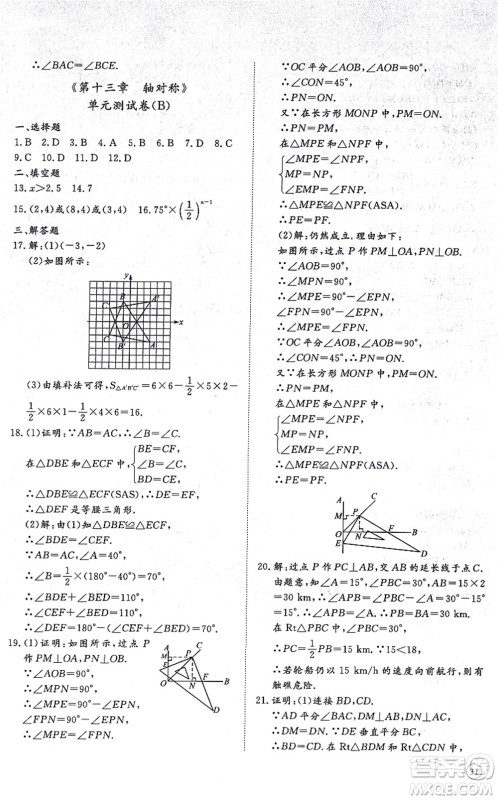 ∴∠BAC=∠BCE.
《第十三章　轴对称》
单元测试卷(B)
一、选择题
1.B 2.D 3.B 4.D 5.B 6.C 7.B 8.B
9.C 10.D 11.D 12.D
二、填空题
13.x>2.5 14.7
15.(2,4)或(8,4)或(3,4) 16.75°×(1/2)ⁿ⁻¹
三、解答题
17.解:(1)(−3,−2)
(2)如图所示:
y
B A'
C
O x
B' A
(3)由填补法可得,S△A'B'C'=6×6−1/2×5×2−
1/2×6×1−1/2×4×6=16.
18.(1)证明:∵AB=AC,∴∠B=∠C.
在△DBE和△ECF中,{BE=CF,
∠B=∠C,
BD=EC,
∴△DBE≌△ECF(SAS),∴DE=EF,
∴△DEF是等腰三角形.
(2)解:由(1)知△DBE≌△ECF,
∴∠BDE=∠CEF.
∵∠A=40°,
∴∠B=1/2×(180°−40°)=70°,
∴∠BDE+∠DEB=110°,
∴∠CEF+∠DEB=110°,
∴∠DEF=180°−(∠CEF+∠DEB)=70°.
19.(1)证明:如图所示,过点P
作PM⊥OA,PN⊥OB,
∵∠AOB=90°,
∴∠MPN=90°,
∴∠MPE=90°−∠EPN,
∠FPN=90°−∠EPN,
∴∠MPE=∠FPN.
A C
M P
E
O N F B
D
∵OC平分∠AOB,∠AOB=90°,
∴∠CON=45°,
∴PN=ON.
又∵在长方形MONP中,MP=ON,
∴MP=PN,
在△MPE和△NPF中,
{∠MPE=∠NPF,
MP=NP,
∠EMP=∠FNP,
∴△MPE≌△NPF(ASA).
∴PE=PF.
(2)解:仍然成立.理由如下:
如图所示,过点P作PM⊥OA,PN⊥OB,
∵∠AOB=90°,
∴∠MPN=90°,
∴∠MPE=90°−∠EPN,
∠FPN=90°−∠EPN,
∴∠MPE=∠FPN.
∵OC平分∠AOB,∠AOB=90°,
∴∠CON=45°,
∴PN=ON.
又∵在长方形MONP中,MP=ON,
∴MP=PN,
在△MPE和△NPF中,
{∠MPE=∠NPF,
MP=NP,
∠EMP=∠FNP,
∴△MPE≌△NPF(ASA),
∴PE=PF.
A C
M P
O F B
E
D
20.解:过点P作PC⊥AB,交AB的延长线于点C.
由题意,知∠A=15°,∠PBC=30°,AB=15×2
=30 km,
∴∠APB=∠PBC−∠A=15°.
∴∠A=∠APB=15°.∴PB=BA=30 km.
在Rt△PBC中,∠PBC=30°,
∴PC=1/2PB=15 km. ∵15<18,
∴若轮船仍以15 km/h的速度向前航行,则有
触礁危险.
21.证明:(1)连接BD,CD.
∵AD平分∠BAC,DF⊥AC,DE⊥AB,
∴DE=DF.在Rt△ADE和Rt△ADF中,